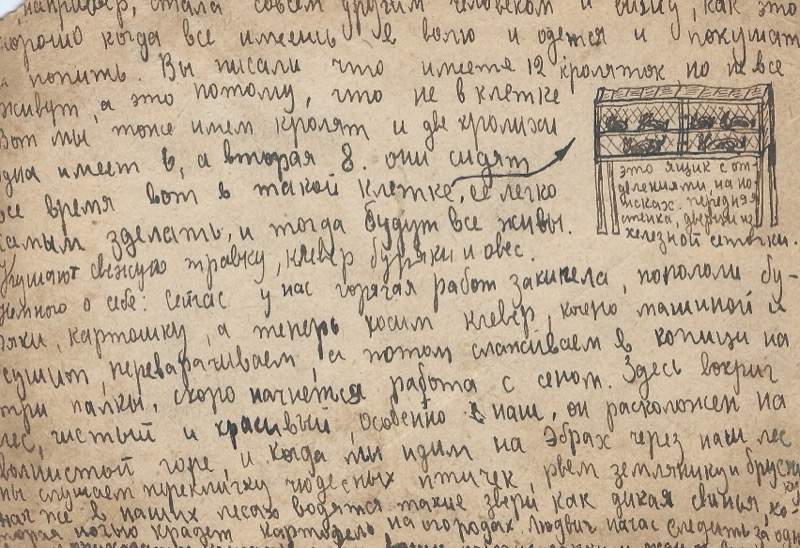 например, стала совсем другим человеком и вижу, как это
хорошо когда все имеешь в волю и одется и покушат
и попить. Вы писали что имеете 12 кроляток но не все
живут, а это потому, что не в клетке
Вот мы тоже имем кролят и две кролихи
одна имеет 6, а вторая 8. они сидят
все время вот в такой клетке, ее легко
самым зделать, и тогда будут все живы.
Кушают свежую травку, клевер буряки и овес.
это ящик с от-
делениями, на но-
жсках. передняя
стенка, дверки из
железной сеточки.
немного о себе: сейчас у нас горячая работ закипела, пололи бу-
ряки, картошку, а теперь косим клевер, машиной и
сушим, переварачиваем, а потом слаживаем в копици на
три палки, скоро начнется работа с сеном. Здесь вокруг
лес, чистый и красивый, особенно наш, он расположен на
волнистой горе, и когда мы идим на Эбрах через наш лес
мы слушаем перекличку чюдесных птичек, рвем землянику и бруснику
так же в наших лесах водятся такие звери как дикая свинья, ко-
торая ночью крадет картофель на огородах. Людвиг начас следить за одн